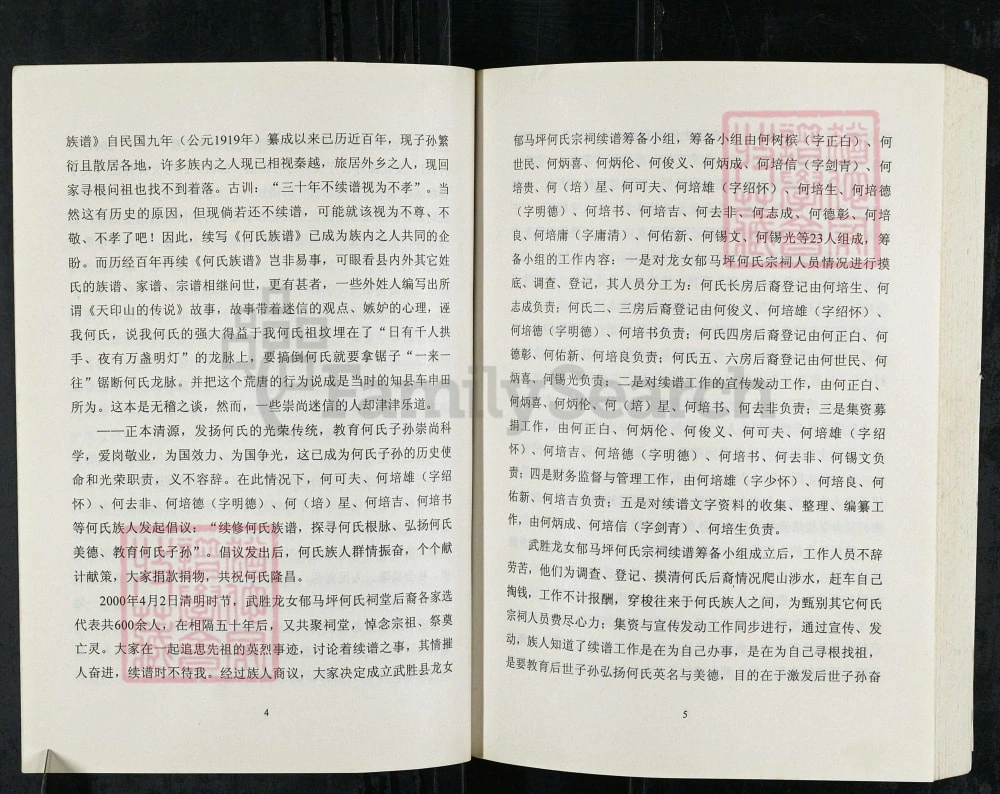 族谱》自民国九年（公元1919年）纂成以来已历近百年，现子孙繁
衍且散居各地，许多族内之人现已相视秦越，旅居外乡之人，现回
家寻根问祖也找不到着落。古训：“三十年不续谱视为不孝”。当
然这有历史的原因，但现倘若还不续谱，可能就该视为不尊、不
敬、不孝了吧！因此，续写《何氏族谱》已成为族内之人共同的企
盼。而历经百年再续《何氏族谱》岂非易事，可眼看县内外其它姓
氏的族谱、家谱、宗谱相继问世，更有甚者，一些外姓人编写出所
谓《天印山的传说》故事，故事带着迷信的观点、嫉妒的心理，诬
我何氏，说我何氏的强大得益于我何氏祖坟埋在了“日有千人拱
手、夜有万盏明灯”的龙脉上，要搞倒何氏就要拿锯子“一来一
往”锯断何氏龙脉。并把这个荒唐的行为说成是当时的知县车申田
所为。这本是无稽之谈，然而，一些崇尚迷信的人却津津乐道。
——正本清源，发扬何氏的光荣传统，教育何氏子孙崇尚科
学，爱岗敬业，为国效力、为国争光，这已成为何氏子孙的历史使
命和光荣职责，义不容辞。在此情况下，何可夫、何培雄（字绍
怀）、何去非、何培德（字明德）、何（培）星、何培吉、何培书
等何氏族人发起倡议：“续修何氏族谱，探寻何氏根脉、弘扬何氏
美德、教育何氏子孙”。倡议发出后，何氏族人群情振奋，个个献
计献策，大家捐款捐物，共祝何氏隆昌。
2000年4月2日清明时节，武胜龙女郁马坪何氏祠堂后裔各家选
代表共600余人，在相隔五十年后，又共聚祠堂，悼念宗祖、祭奠
亡灵。大家在一起追思先祖的英烈事迹，讨论着续谱之事，其情摧
人奋进，续谱时不待我。经过族人商议，大家决定成立武胜县龙女
4
郁马坪何氏宗祠续谱筹备小组，筹备小组由何树槟（字正白）、何
世民、何炳喜、何炳伦、何俊义、何炳成、何培信（字剑青）、何
培贵、何（培）星、何可夫、何培雄（字绍怀）、何培生、何培德
（字明德）、何培书、何培吉、何去非、何志成、何德彰、何培
良、何培庸（字庸清）、何佑新、何锡文、何锡光等23人组成，筹
备小组的工作内容：一是对龙女郁马坪何氏宗祠人员情况进行摸
底、调查、登记，其人员分工为：何氏长房后裔登记由何培生、何
志成负责；何氏二、三房后裔登记由何俊义、何培雄（字绍怀）、
何培德（字明德）、何培书负责；何氏四房后裔登记由何正白、何
德彰、何佑新、何培良负责；何氏五、六房后裔登记由何世民、何
炳喜、何锡光负责；二是对续谱工作的宣传发动工作，由何正白、
何炳喜、何炳伦、何（培）星、何培书、何去非负责；三是集资募
捐工作，由何正白、何炳伦、何俊义、何可夫、何培雄（字绍
怀）、何培吉、何培德（字明德）、何培书、何去非、何锡文负
责；四是财务监督与管理工作，由何培雄（字少怀）、何培良、何
佑新、何培吉负责；五是对续谱文字资料的收集、整理、编纂工
作，由何炳成、何培信（字剑青）、何培生负责。
武胜龙女郁马坪何氏宗祠续谱筹备小组成立后，工作人员不辞
劳苦，他们为调查、登记、摸清何氏后裔情况爬山涉水，赶车自己
掏钱，工作不计报酬，穿梭往来于何氏族人之间，为甄别其它何氏
宗祠人员费尽心力；集资与宣传发动工作同步进行，通过宣传、发
动，族人知道了续谱工作是在为自己办事，是在为自己寻根找祖，
是要教育后世子孙弘扬何氏英名与美德，目的在于激发后世子孙奋
5
FamilySearch